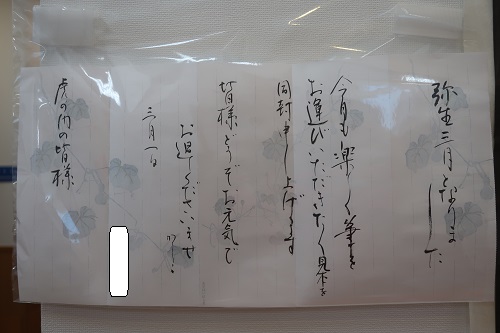 弥生三月となりま
した
今月も楽しく筆を
お運びいただきたく見本を
同封申し上げます
皆様どうぞお元気で
お過しくださいませ
三月一日
虎の門の皆様